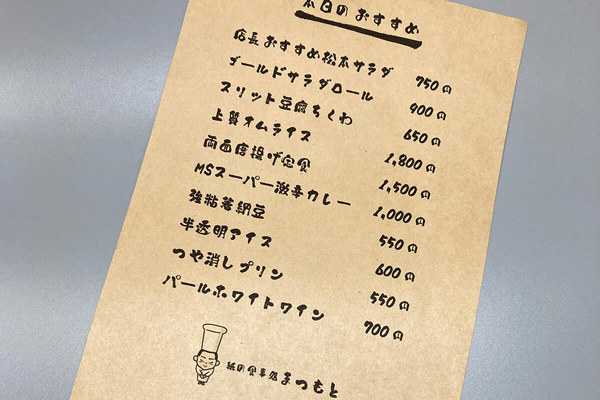 本日のおすすめ
店長おすすめ松本サラダ 750円
ゴールドサラダロール 900円
スリット豆腐ちくわ 650円
上質オムライス 1,800円
両面唐揚げ定食 1,500円
MSスーパー激辛カレー 1,000円
強粘着納豆 550円
半透明アイス 600円
つや消しプリン 550円
パールホワイトワイン 700円
紙の食事処 まつもと